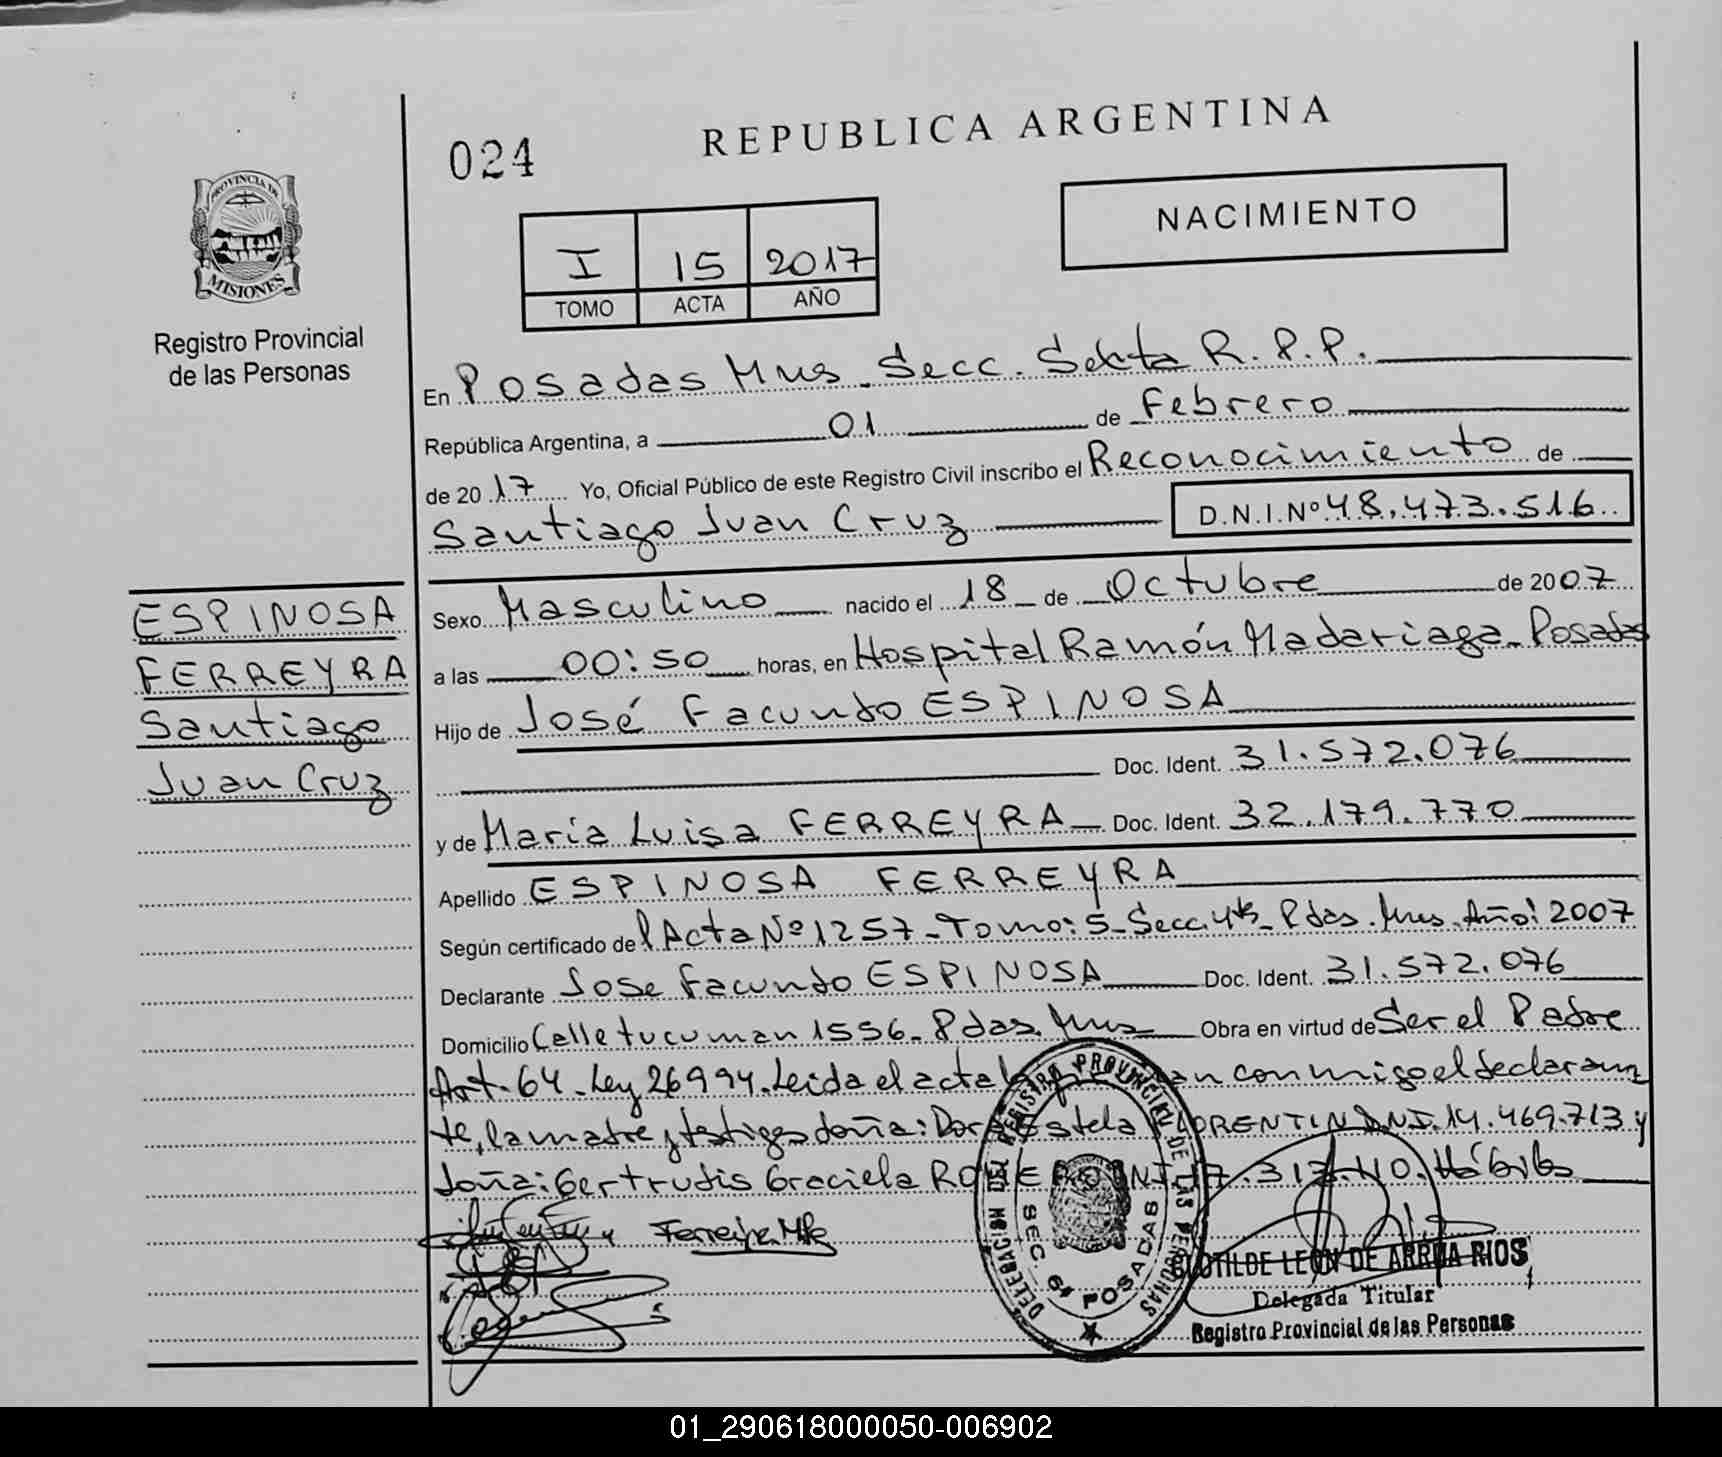 024
REPUBLICA ARGENTINA
PROVINCIA DE
MISIONES
Registro Provincial
de las Personas
NACIMIENTO
I 15 2017
TOMO ACTA AÑO
En Posadas Mns. Secc. Sexta R.P.P.
República Argentina, a 01 de Febrero
de 2017 Yo, Oficial Público de este Registro Civil inscribo el Reconocimiento de
Santiago Juan Cruz D.N.I.Nº 48.473.516
ESPINOSA
FERREYRA
Santiago
Juan Cruz
Sexo Masculino nacido el 18 de Octubre de 2007
a las 00:50 horas, en Hospital Ramón Madariaga - Posadas
Hijo de José Facundo ESPINOSA
Doc. Ident. 31.572.076
y de María Luisa FERREYRA Doc. Ident. 32.179.770
Apellido ESPINOSA FERREYRA
Según certificado del Acta Nº 1257 - Tomo: 5 - Secc. 4ta - Pdas. Mns. Año: 2007
Declarante Jose Facundo ESPINOSA Doc. Ident. 31.572.076
Domicilio Calle tucuman 1556 - Pdas. Mns Obra en virtud de Ser el Padre
Art. 64 - Ley 26994. Leida el acta conmigo el declaran
te, la madre y testigos doña: Estela FLORENTIN D.N.I. 14.469.713 y
doña: Gertrudis Graciela Hábiles
Ferreyra
DELEGACION DEL REGISTRO PROVINCIAL DE LAS PERSONAS
SEC. 6ª POSADAS
CLOTILDE LEON DE ARRUA RIOS
Delegada Titular
Registro Provincial de las Personas
01_290618000050-006902